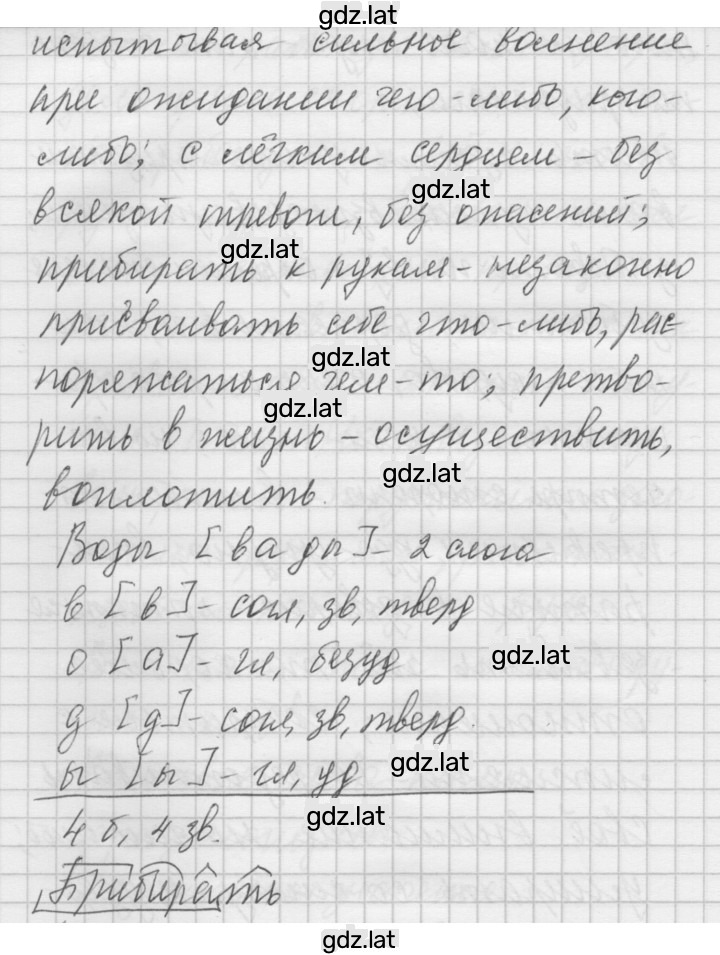 gdz.lat
испытывая сильное волнение
при ожидании чего-либо, кого-
либо; с лёгким сердцем – без
gdz.lat
всякой тревоги, без опасений;
gdz.lat
прибирать к рукам – незаконно
присваивать себе что-либо, рас-
gdz.lat
поряжаться чем-то; претво-
gdz.lat
рить в жизнь – осуществить,
gdz.lat
воплотить.
Воды [в а ды] – 2 слога
в [в] – согл, зв, тверд
о [а] – гл, безуд
gdz.lat
д [д] – согл, зв, тверд.
ы [ы] – гл, уд
gdz.lat
gdz.lat
4 б, 4 зв.
Прибирать
gdz.lat